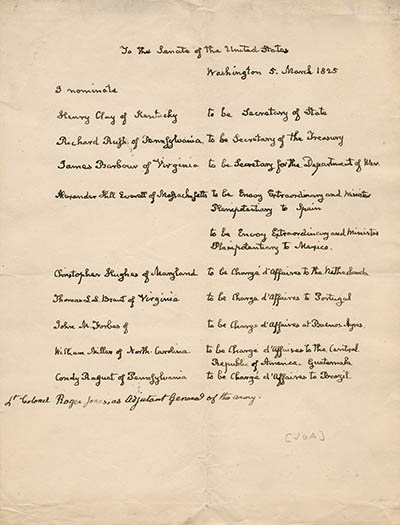 To the Senate of the United States
Washington 5. March 1825
I nominate
Henry Clay of Kentucky to be Secretary of State
Richard Rush of Pennsylvania, to be Secretary of the Treasury
James Barbour of Virginia to be Secretary for the Department of War.
Alexander Hill Everett of Massachusetts to be Envoy Extraordinary and Minister
Plenipotentiary to Spain
to be Envoy Extraordinary and Minister
Plenipotentiary to Mexico.
Christopher Hughes of Maryland to be Chargé d'Affaires to the Netherlands
Thomas L. L. Brent of Virginia to be Chargé d'Affaires to Portugal
John M. Forbes of to be Chargé d'Affaires at Buenos Ayres.
William Miller of North Carolina. to be Chargé d'Affaires to the Central
Republic of America. Guatemala
Condy Raguet of Pennsylvania to be Chargé d'Affaires to Brazil.
Lt Colonel Roger Jones, as Adjutant General of the army.
[JQA]